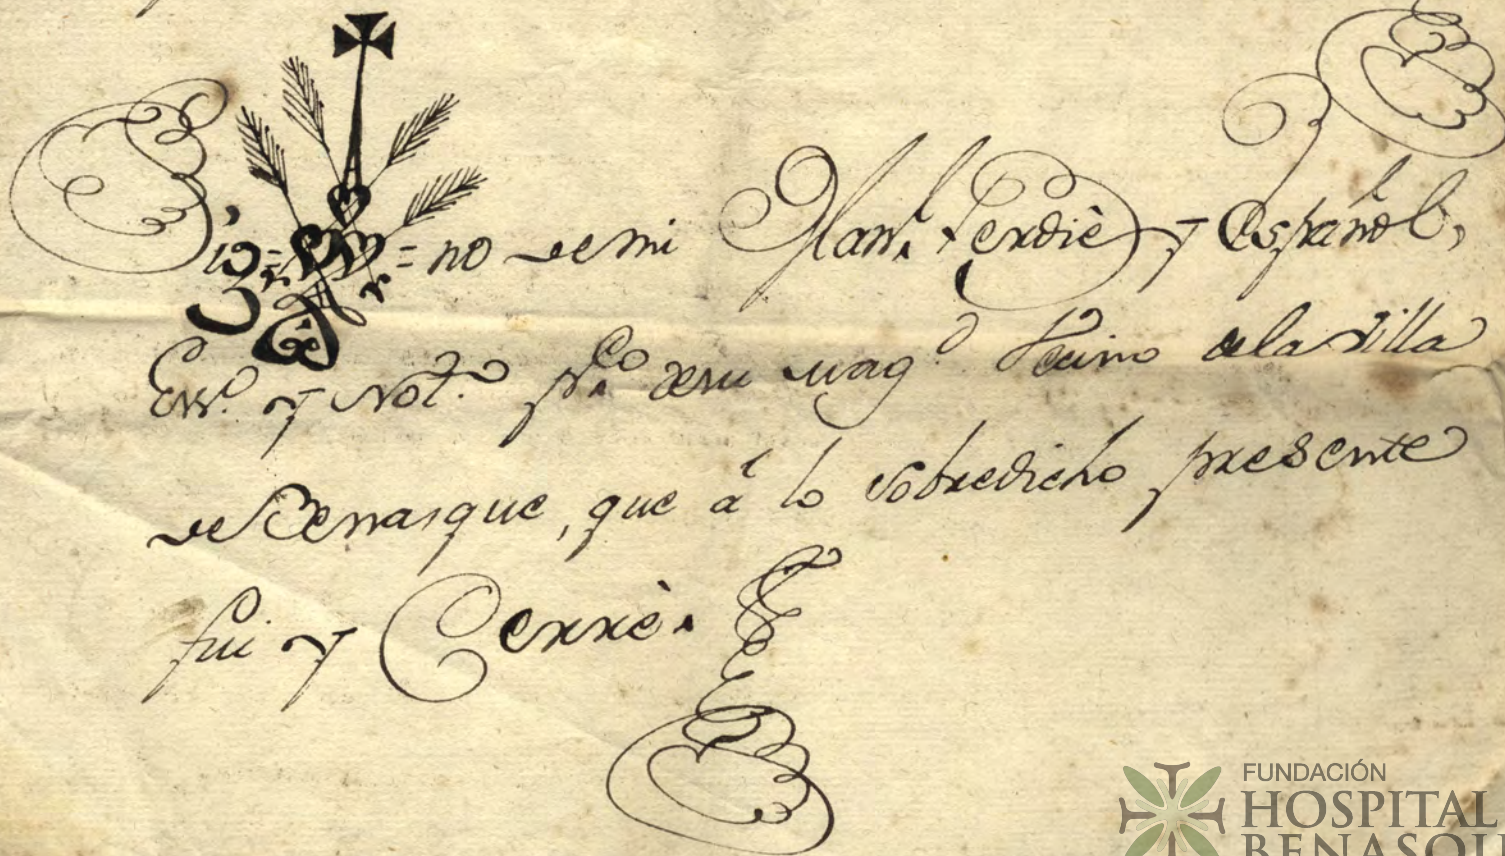 Sig= =no de mi Man.l Ferdiè y Español,
Ess.no y Not.o p.co de su mag.d Vecino de la Villa
de Benasque, que á lo sobredicho presente
fui y Cerrè.
FUNDACIÓN
HOSPITAL
BENASQU